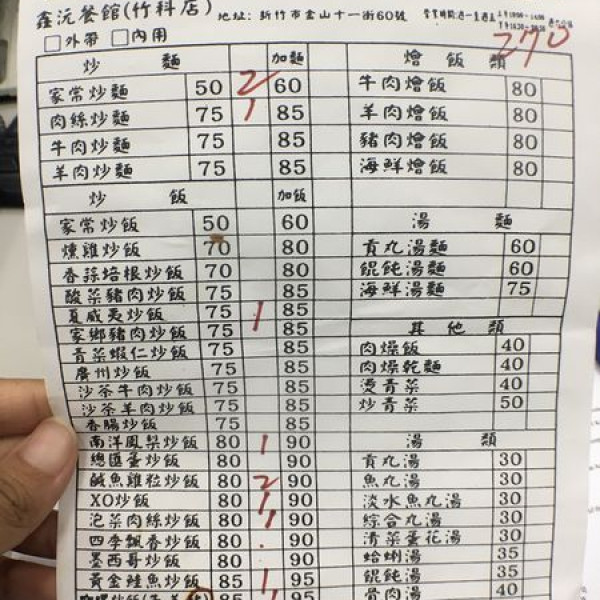 鑫沅餐館(竹科店) 地址: 新竹市金山十一街60號
□外帶 □內用 270
炒 麵 加麵 燴 飯 類
家常炒麵 50 2 60 牛肉燴飯 80
肉絲炒麵 75 1 85 羊肉燴飯 80
牛肉炒麵 75 85 豬肉燴飯 80
羊肉炒麵 75 85 海鮮燴飯 80
炒 飯 加飯
家常炒飯 50 60 湯 麵
燻雞炒飯 70 80 貢丸湯麵 60
香蒜培根炒飯 70 80 餛飩湯麵 60
酸菜豬肉炒飯 75 85 海鮮湯麵 75
夏威夷炒飯 75 85
家鄉豬肉炒飯 75 1 85 其 他 類
青菜蝦仁炒飯 75 85 肉燥飯 40
廣州炒飯 75 85 肉燥乾麵 40
沙茶牛肉炒飯 75 85 燙青菜 40
沙茶羊肉炒飯 75 85 炒青菜 50
香腸炒飯 75 85
南洋鳳梨炒飯 80 1 90 湯 類
總匯蛋炒飯 80 90 貢丸湯 30
鹹魚雞粒炒飯 80 2 90 魚丸湯 30
XO炒飯 80 1 90 淡水魚丸湯 30
泡菜肉絲炒飯 80 1 90 綜合丸湯 30
四季飄香炒飯 80 90 清菜蛋花湯 30
墨西哥炒飯 80 90 蛤蜊湯 35
黃金鮭魚炒飯 85 1 95 餛飩湯 35
85 1 95 骨肉湯 40